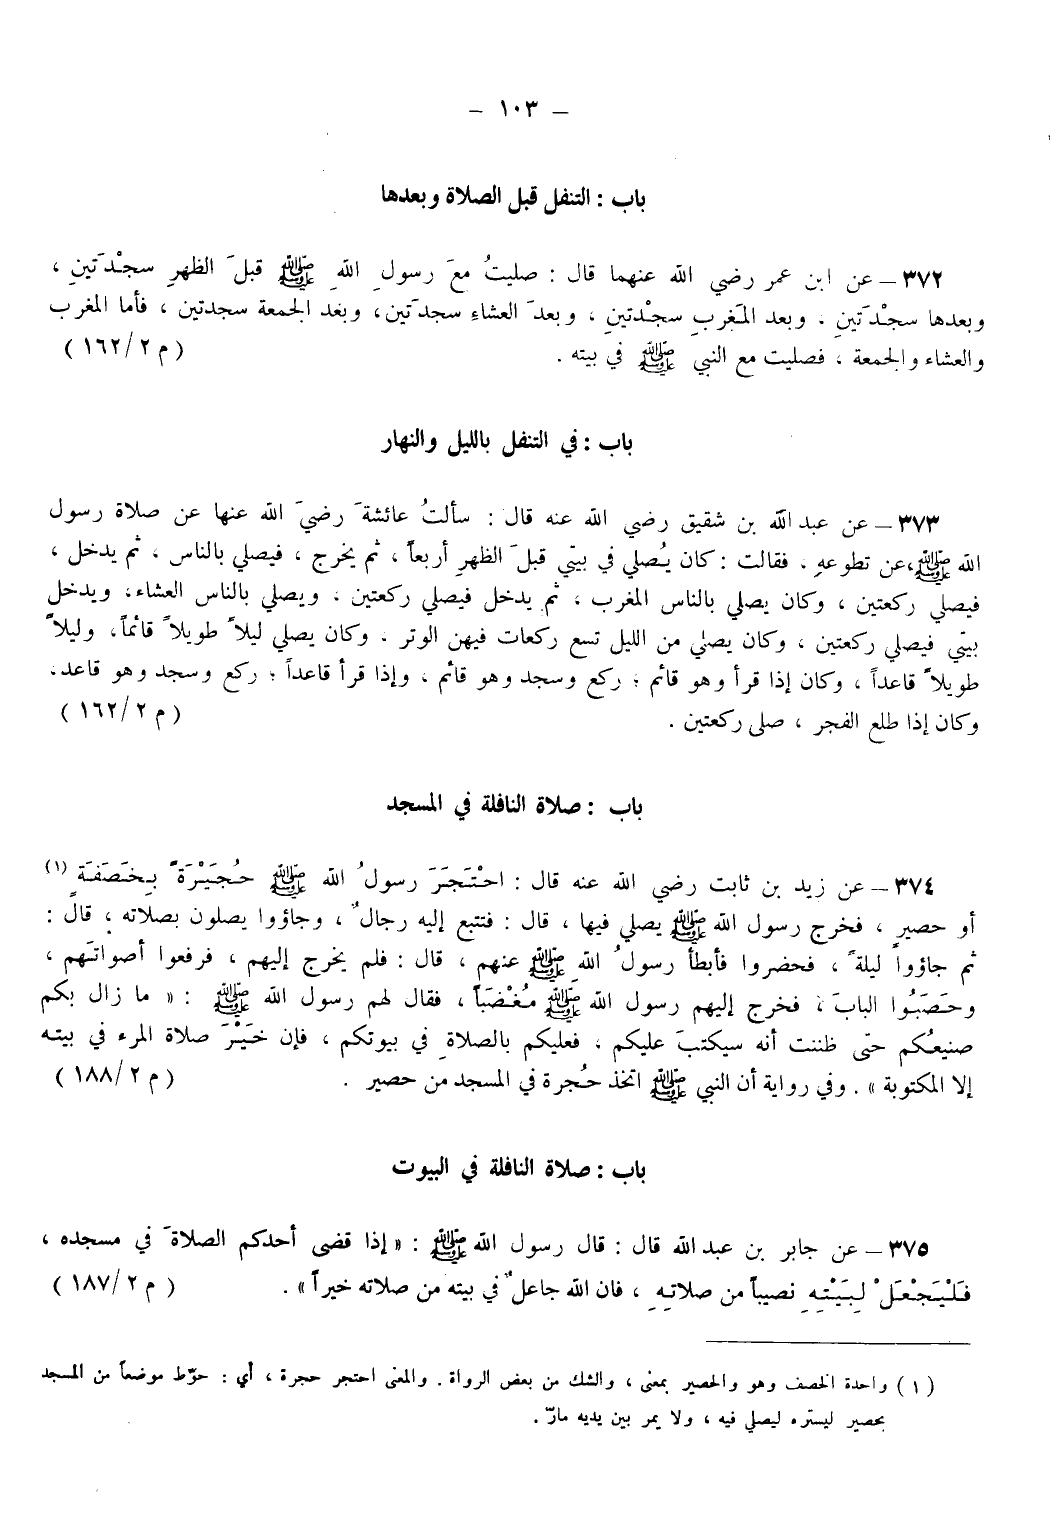 – ١٠٣ –
باب : التنفل قبل الصلاة وبعدها
٣٧٢ – عن ابن عمر رضي الله عنهما قال : صليتُ معَ رسولِ اللهِ ﷺ قبلَ الظهرِ سجْدَتينِ ،
وبعدها سجْدَتينِ . وبعد المَغربِ سجْدتينِ ، وبعدَ العشاءِ سجدَتين، وبعْد الجمعة سجدتين ، فأما المغرب
والعشاء والجمعة ، فصليت مع النبي ﷺ في بيته . ( م ٢/ ١٦٢ )
باب : في التنفل بالليل والنهار
٣٧٣ – عن عبد الله بن شقيق رضي الله عنه قال : سألتُ عائشةَ رضيَ الله عنها عن صلاة رسول
الله ﷺ،عن تطوعهِ . فقالت : كان يُصلي في بيتي قبلَ الظهرِ أربعاً ، ثم يخرج ، فيصلي بالناس ، ثم يدخل ،
فيصلي ركعتين ، وكان يصلي بالناس المغرب ، ثم يدخل فيصلي ركعتين . ويصلي بالناس العشاء، ويدخل
بيتي فيصلي ركعتين ، وكان يصلي من الليل تسع ركعات فيهن الوتر . وكان يصلي ليلاً طويلاً قائماً، وليلاً
طويلاً قاعداً ، وكان إذا قرأ وهو قائم ؛ ركع وسجد وهو قائم ، وإذا قرأ قاعداً ؛ ركع وسجد وهو قاعد.
وكان إذا طلع الفجر ، صلى ركعتين . ( م ٢/ ١٦٢ )
باب : صلاة النافلة في المسجد
٣٧٤ – عن زيد بن ثابت رضي الله عنه قال : احْتَجَرَ رسولُ الله ﷺ حُجَيْرَةً بِخَصَفَةٍ (١)
أو حصير ، فخرج رسول الله ﷺ يصلي فيها ، قال : فتتبع إليه رجالٌ ، وجاؤوا يصلون بصلاته ، قال :
ثم جاؤوا ليلةً ، فحضروا فأبطأ رسولُ اللهِ ﷺ عنهم ، قال : فلم يخرج إليهم ، فرفعوا أصواتَهم ،
وحَصَبُوا البابَ ، فخرج إليهم رسول الله ﷺ مُغْضَباً ، فقال لهم رسول الله ﷺ : « ما زال بكم
صنيعُكم حتى ظننت أنه سيكتبَ عليكم ، فعليكم بالصلاةِ في بيوتكم ، فإن خَيْرَ صلاة المرء في بيته
إلا المكتوبة » . وفي رواية أن النبي ﷺ اتخذ حُجرة في المسجد من حصير . ( م ٢/ ١٨٨ )
باب : صلاة النافلة في البيوت
٣٧٥ – عن جابر بن عبد الله قال : قال رسول الله ﷺ : « إذا قضى أحدكم الصلاةَ في مسجده ،
فَلْيَجْعَلْ لِبَيْتِهِ نصيباً من صلاتِهِ ، فان الله جاعلٌ في بيته من صلاته خيراً » . ( م ٢/ ١٨٧ )
( ١ ) واحدة الخصف وهو والحصير بمعنى ، والشك من بعض الرواة . والمعنى احتجر حجرة ، أي : حوّط موضعاً من المسجد
بحصير ليستره ليصلي فيه ، ولا يمر بين يديه مارّ .